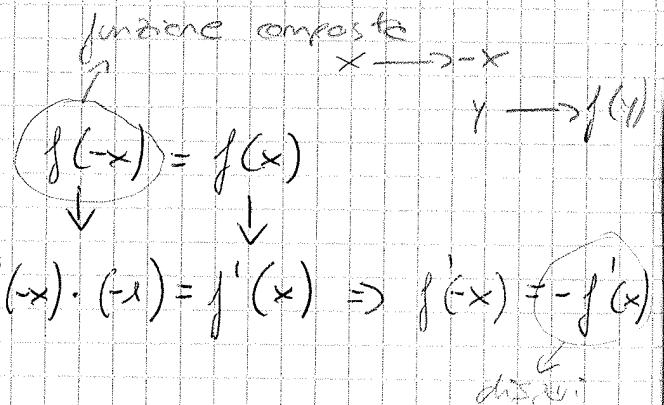 funzione composta
x → -x
y → f(y)
f(-x) = f(x)
↓ ↓
'(-x) · (-1) = f'(x) ⇒ f'(-x) = -f'(x)